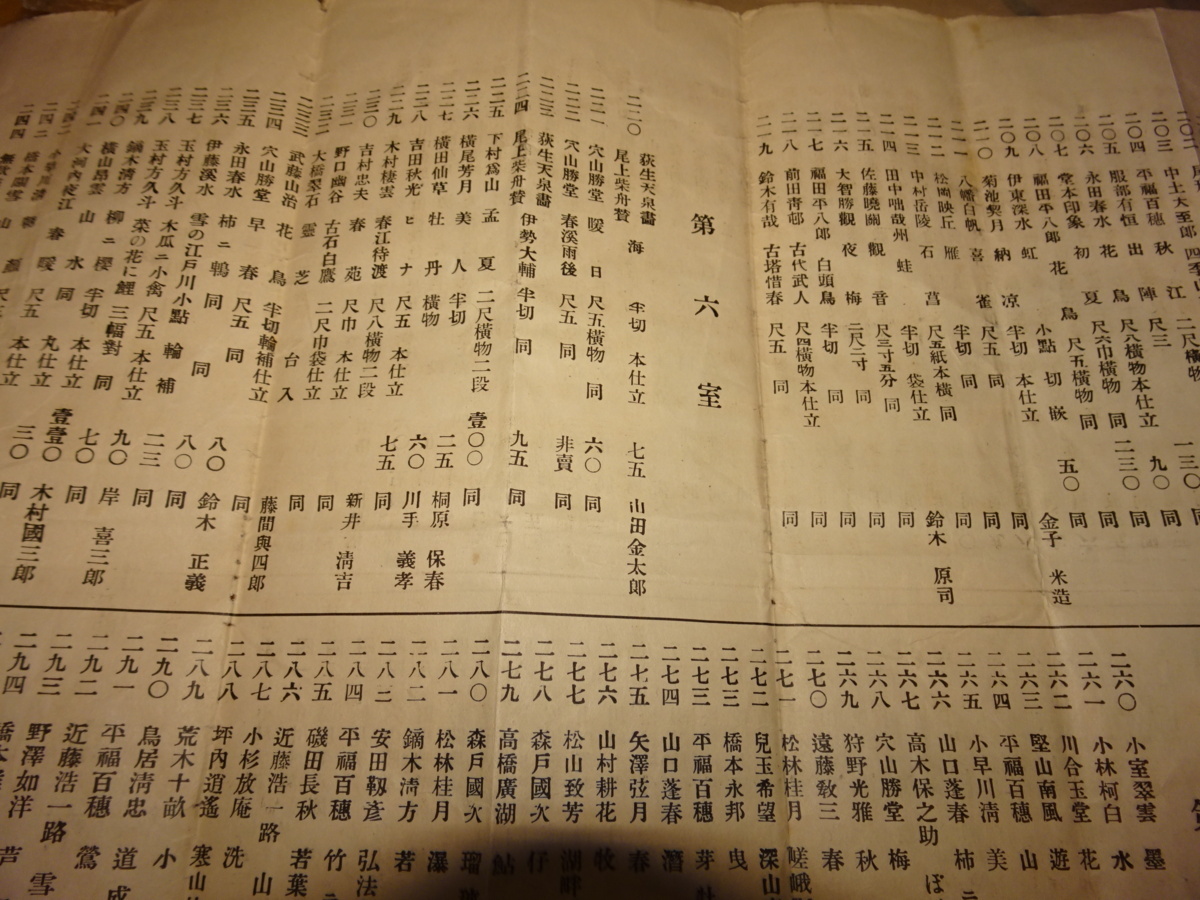 二〇三 平福百穂 秋江
二〇四 服部有恒 出陣 尺三 九〇 同
永田春水 花鳥 尺八横物本仕立 二三〇 同
二〇六 堂本印象 初夏 尺五横物 同
二〇七 福田平八郎 花鳥 小點切嵌 五〇 金子 米造
二〇八 伊東深水 虹 半切 本仕立 同
二〇九 菊池契月 納凉 尺五 同
二一〇 八幡白帆 喜雀 半切 同
二一一 松岡映丘 雁 尺五紙本横 同
二一二 中村岳陵 石菖 半切 袋仕立 鈴木 原司
二一三 田中咄哉州 蛙 尺三寸五分 同
二一四 佐藤曉關 觀音 同
二一五 大智勝觀 夜梅 二尺二寸 同
二一六 福田平八郎 白頭鳥 半切 同
二一七 前田靑邨 古代武人 尺四横物本仕立 同
二一八 鈴木有哉 古塔惜春 尺五 同
二一九
第六室
二二〇 荻生天泉畫 尾上柴舟贊 海 半切 本仕立 七五 山田金太郎
二二一 穴山勝堂 暖日 尺五横物 同 六〇 同
二二二 穴山勝堂 春溪雨後 尺五 同 非賣 同
二二三 荻生天泉畫
二二四 尾上柴舟贊 伊勢大輔 半切 同 九五 同
二二五 下村爲山 孟夏 二尺横物二段 壹〇〇 同
二二六 横尾芳月 美人 半切 二五 桐原 保春
二二七 横田仙草 牡丹 横物 六〇 川手 義孝
二二八 吉田秋光 ヒナ 尺五 本仕立 七五 同
二二九 木村棲雲 春江待渡 尺八横物二段 新井 淸吉
二三〇 吉村忠夫 春苑 尺巾 本仕立 同
二三一 野口幽谷 古石白鷹 二尺巾袋仕立 同
二三二 大橋翠石 靈芝 台入
二三三 武藤山治 花鳥 半切輪補仕立 藤間與四郎
二三四 穴山勝堂 早春 尺五 同 同
二三五 永田春水 柿ニ鴫 同 八〇 鈴木 正義
二三六 伊藤溪水 雪の江戸川小點 輪補 八〇 同
二三七 玉村方久斗 木瓜ニ小禽 尺五 本仕立 二三 同
二三八 玉村方久斗 菜の花に鯉 三幅對 同 九〇 岸 喜三郎
二三九 鏑木淸方 柳ニ櫻 半切 本仕立 七〇 同
二四〇 横山昂雲 山水 同 壹壹〇 木村國三郎
二四一 大河内夜江 春暖 尺五 丸仕立 三〇 同
二六〇 小室翠雲 墨
二六一 小林柯白 水
二六二 川合玉堂 花
二六三 堅山南風 遊
二六四 平福百穂 山
二六五 小早川淸 美
二六六 山口蓬春 柿ニ
二六七 高木保之助 ぼ
二六八 穴山勝堂 梅
二六九 狩野光雅 秋
二七〇 遠藤敎三 春
二七一 松林桂月 嵯峨
二七二 兒玉希望 深山
二七三 橋本永邦 曳
二七三 平福百穂 芽
二七四 山口蓬春 潛
二七五 矢澤弦月 春
二七六 山村耕花 牧
二七七 松山致芳 湖畔
二七八 森戸國次 仔
二七九 高橋廣湖 鮎
二八〇 森戸國次 瑠
二八一 松林桂月 瀑
二八二 鏑木淸方 若
二八三 安田靱彦 弘法
二八四 平福百穂 竹ニ
二八五 磯田長秋 若葉
二八六 近藤浩一路 山
二八七 小杉放庵 洗
二八八 坪内逍遙 寒山
二八九 荒木十畝 小
二九〇 鳥居淸忠 道成
二九一 平福百穂 鶯
二九二 近藤浩一路 雪
二九三 野澤如洋 芦
二九四